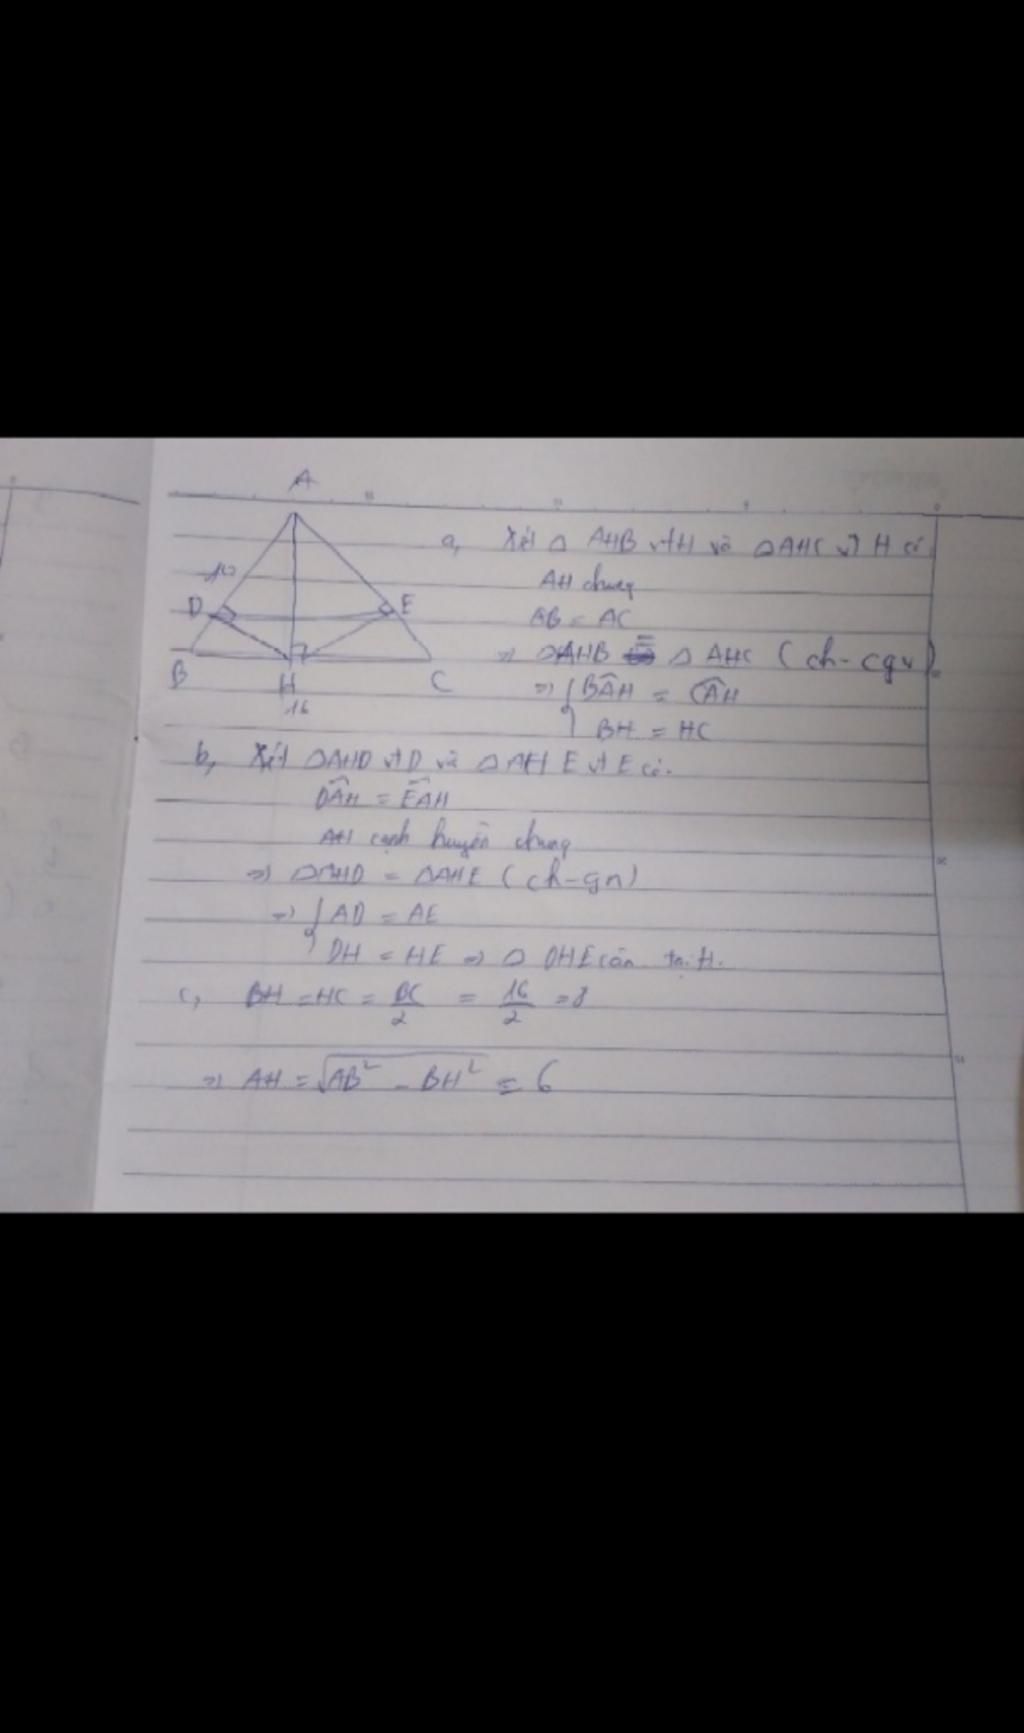 A
10
D
E
B
H
C
16
a, Xét △ AHB vt H và △AHC vt H có
AH chung
AB = AC
=> △AHB = △ AHC (ch-cgv)
=> { BÂH = CÂH
BH = HC
b, Xét △AHD vt D và △AHE vt E có.
DÂH = EÂH
AH cạnh huyền chung
=> △AHD = △AHE (ch-gn)
=> { AD = AE
DH = HE => △ DHE cân tại H.
c, BH = HC = BC/2 = 16/2 = 8
=> AH = √AB² - BH² = 6